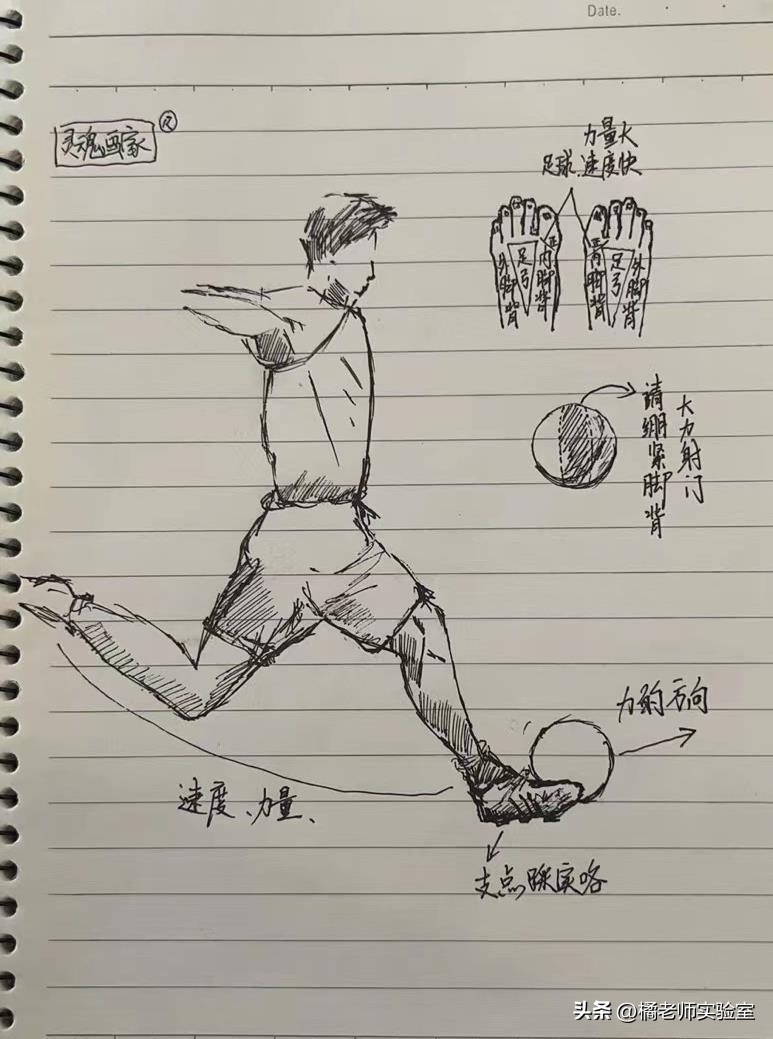 Date.
灵魂画家 R
力量大
足球速度快
外脚背
足弓
内脚背
正
背脚背
足弓
外脚背
请绷紧脚背
大力射门
力的方向
速度、力量、
支点踩实咯
头条 @橘老师实验室